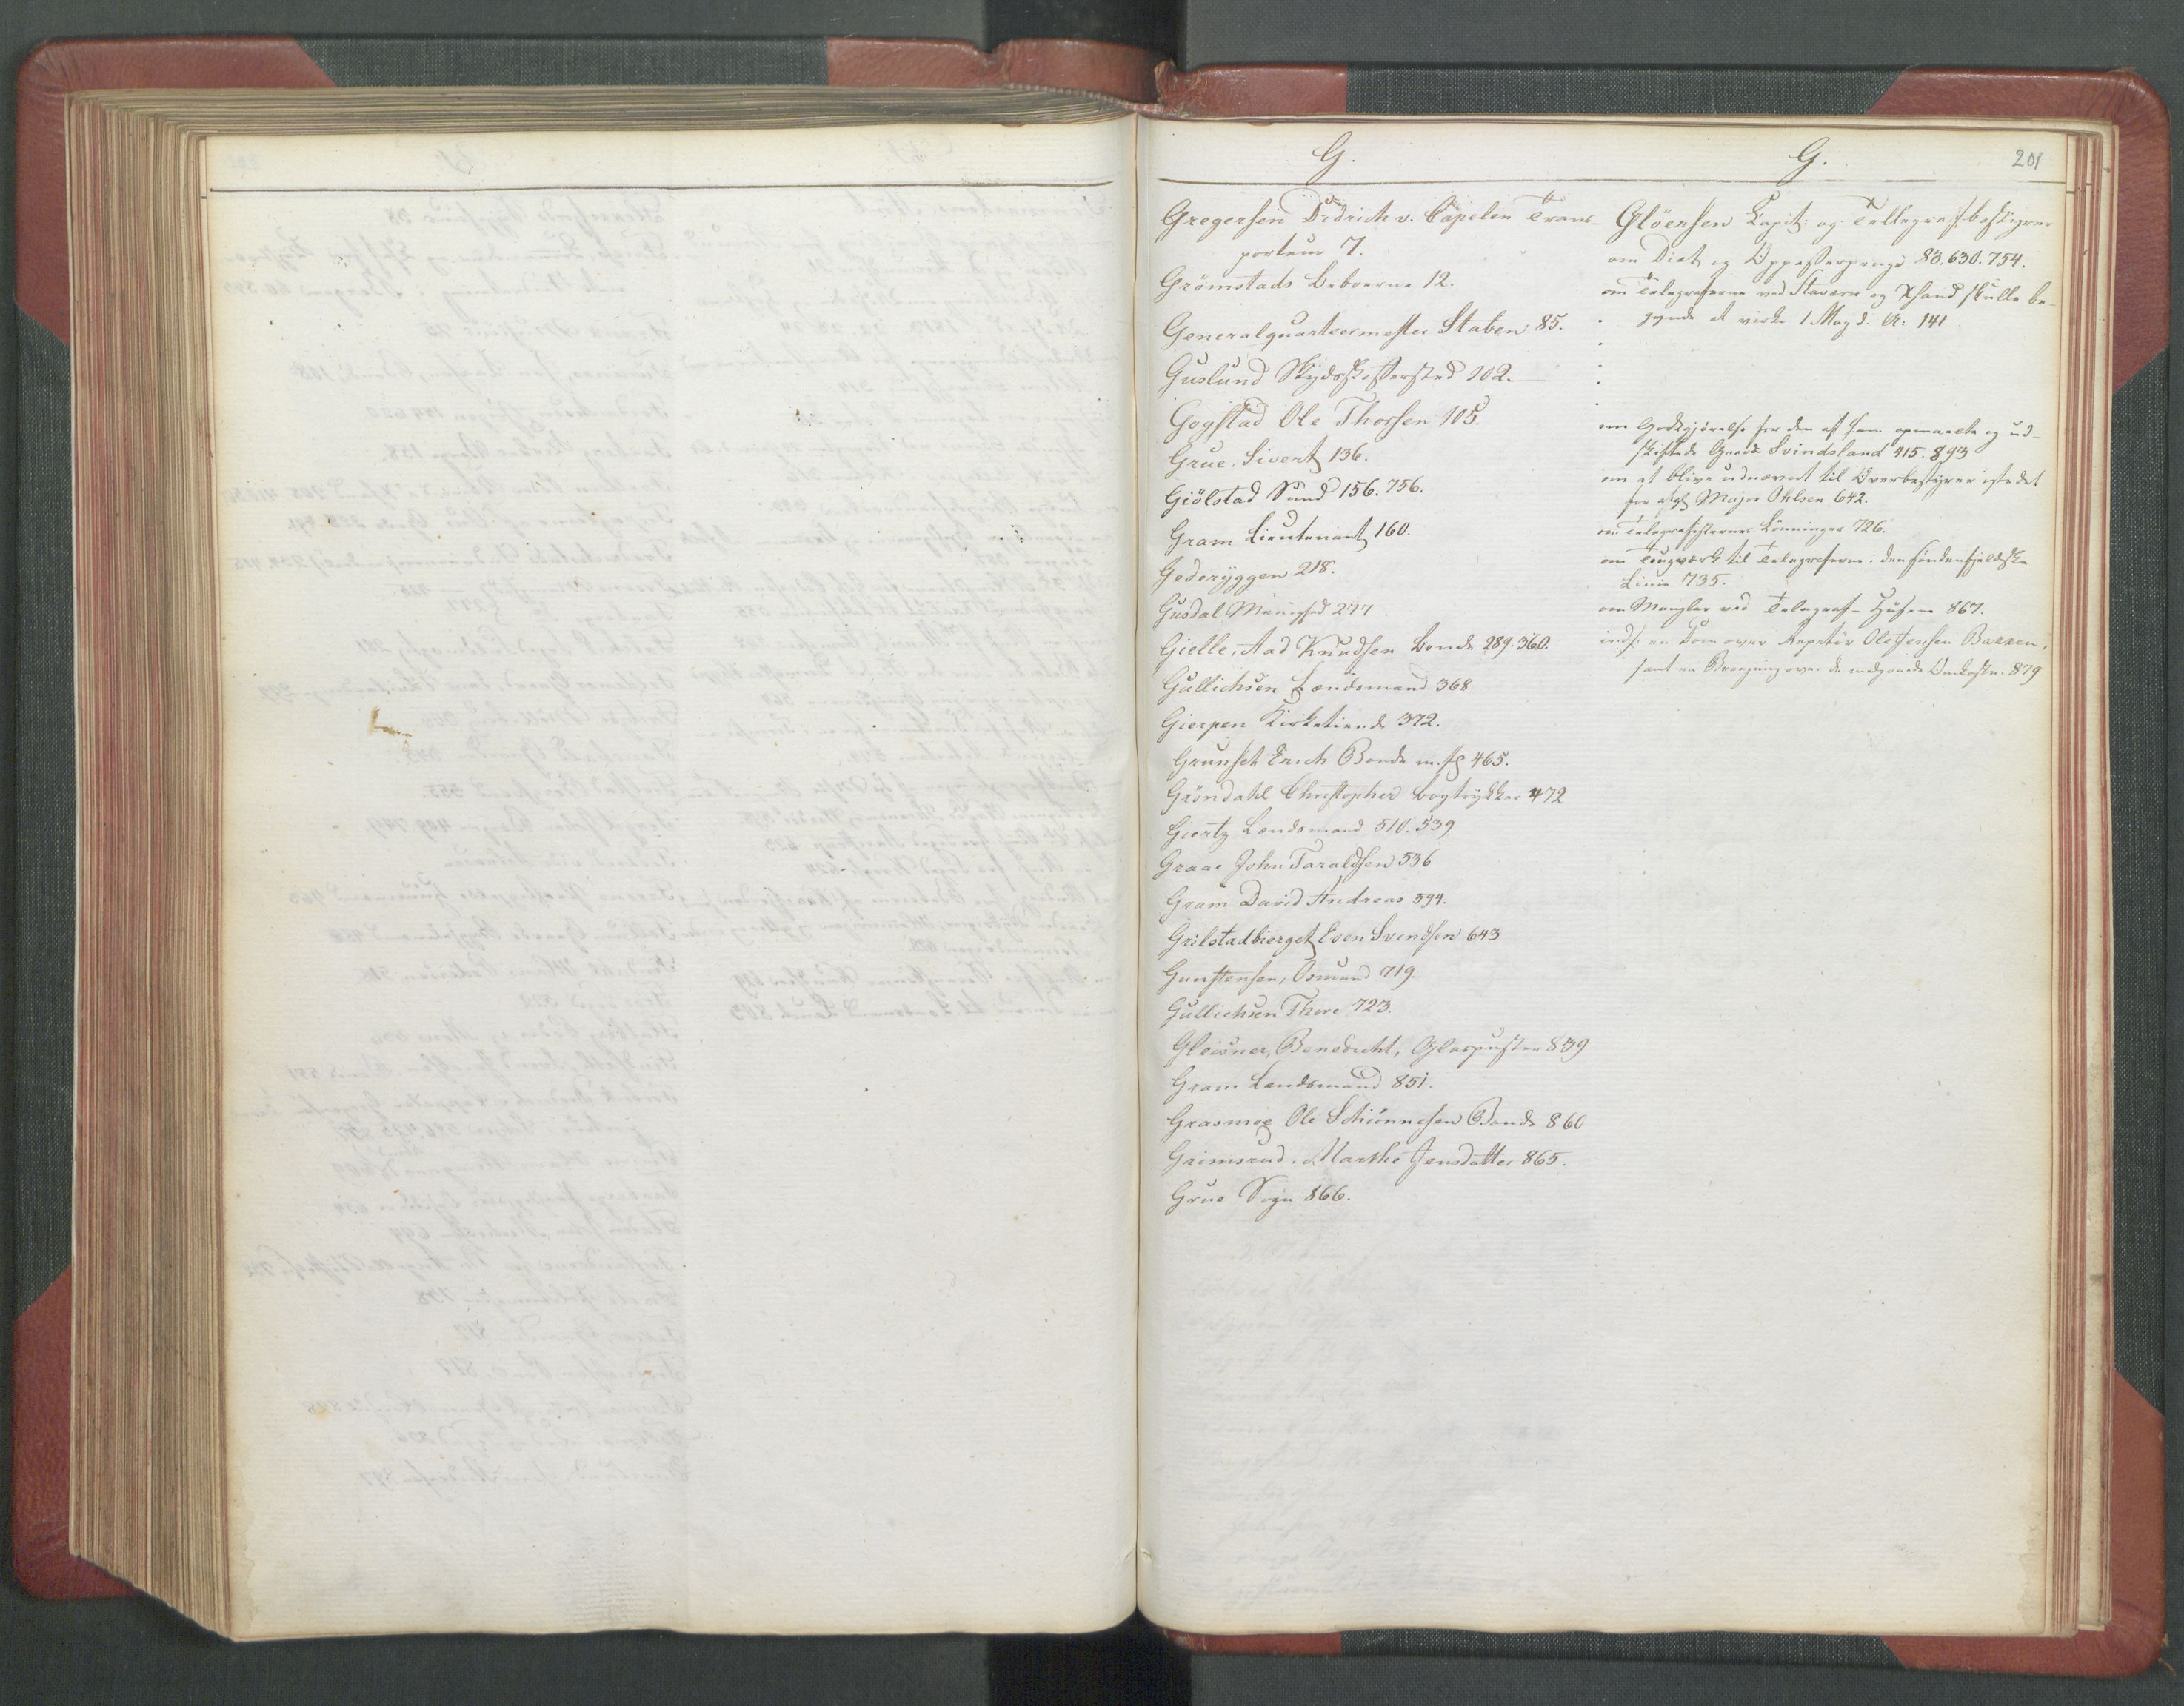 G.
Gregersen Didrich v. Capelen Trans-
porteur 7.
Grömstads Beboerne 12.
Generalquarteermester Staben 85.
Guslund Skydsskifterstad 102.
Gogstad Ole Thorsen 105.
Grue, Sivert 136.
Giölstad Sund 156. 756.
Gram Lieutenant 160.
Gederyggen 218.
Gusdal 277
Gielle, Aad Knudsen Bonde 289. 360.
Gullichsen Lændsmand 368
Gierpen Kirketiende 372.
Grunset Erich Bonde m. fl 465.
Gröndahl Christopher bogtrykker 472
Giertz Lændsmand 510. 539
Graae John Taraldsen 536
Gram David Andreas 594.
Grilstadbierget Even Svendsen 643
Gunstensen, Osmund 719.
Gullichsen Thore 723.
Gleisner, Benedicht, Glaspuster 839
Gram Lændsmand 851.
Grasmoe Ole Schiönnesen Bonde 860
Grimsrud. Marthe Jensdatter 865.
Grue Sogn 866.
G.
201
Glöersen Kapit: og Tellegrafbestyrer
om Diæt og Oppasserpenge 83. 630. 754.
om Telegraferne ved Stavern og Xsand skulle be-
gynde at virke 1 May d. A: 141
om Godtgjørelse for den af ham opmaalte og ud-
skiftede Gaard Svindsland 415. 893
om at blive udnævnt til Overbestyrer istedet
for afg Major Ohlsen 642.
om Telegrafisternes Lönninger 726.
om Tougværk til Telegraferne i den søndenfjeldske
Linie 735.
om Mangler ved Telegraf-Husene 867.
inds. en Dom over Ole Jensen Bakken,
samt en Beregning over de medgaaede Omkostn. 879